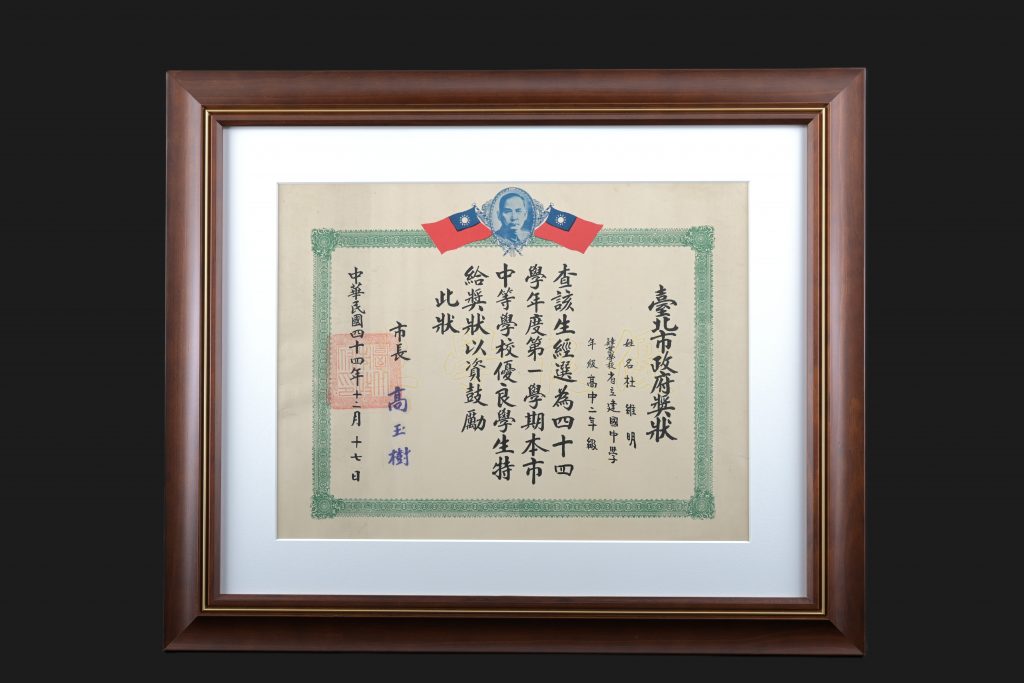 臺北市政府獎狀
姓名杜維明
肄業學校省立建國中學
年級高中二年級
查該生經選為四十四
學年度第一學期本市
中等學校優良學生特
給獎狀以資鼓勵
此狀
市長 高玉樹
中華民國四十四年十二月十七日